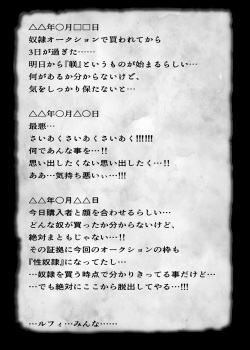 △△年○月□□日
奴隷オークションで買われてから
3日が過ぎた……
明日から『躾』というものが始まるらしい…
何があるか分からないけど、
気をしっかり保たないと…
△△年○月△○日
最悪…
さいあくさいあくさいあく!!!!!!
何であんな事を…!!
思い出したくない思い出したく…!!
ああ…気持ち悪いぃ…!!!
△△年○月△△日
今日購入者と顔を合わせるらしい…
どんな奴が買ったか分からないけど、
絶対まともじゃない…!!
その証拠に今回のオークションの枠も
『性奴隷』になってたし…
…奴隷を買う時点で分かりきってる事だけど…
…でも絶対にここから脱出してやる…!!!
…ルフィ…みんな……